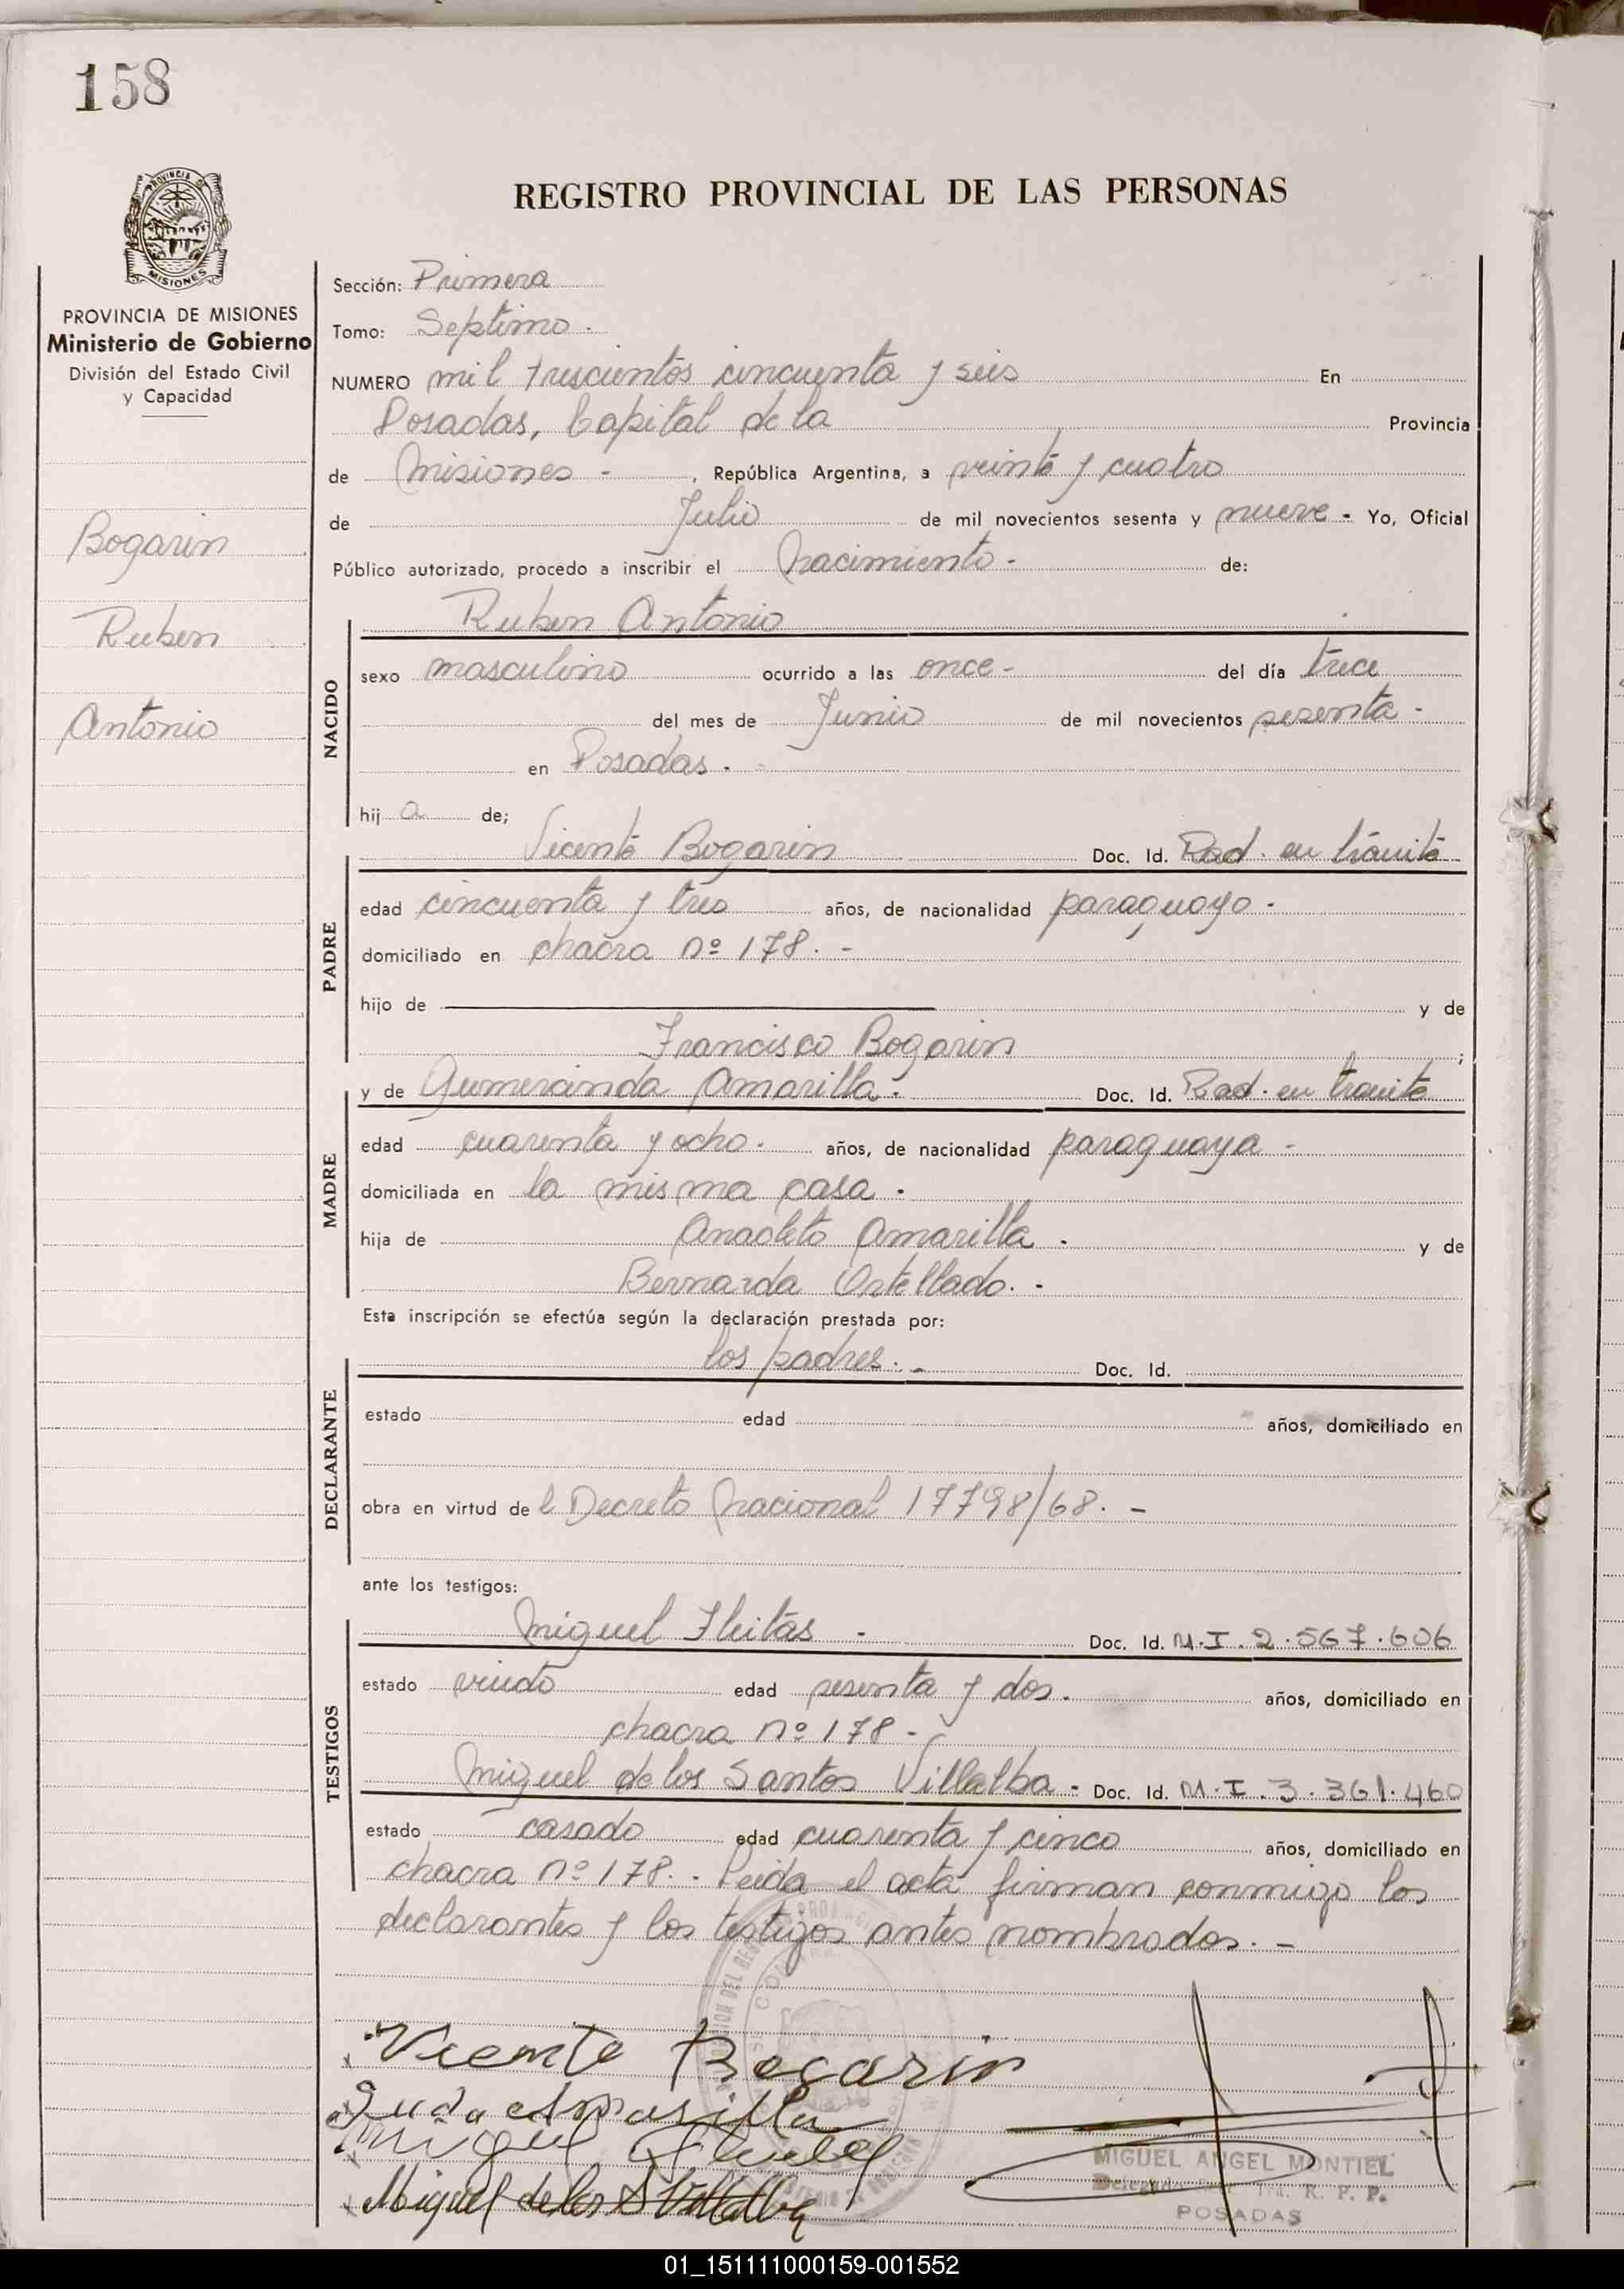 158
PROVINCIA DE
MISIONES
REGISTRO PROVINCIAL DE LAS PERSONAS
PROVINCIA DE MISIONES
Ministerio de Gobierno
División del Estado Civil
y Capacidad
Bogarin
Ruben
Antonio
Sección: Primera
Tomo: Septimo.
NUMERO mil trescientos cincuenta y seis En
Posadas, Capital de la Provincia
de Misiones - , República Argentina, a veinte y cuatro
de Julio de mil novecientos sesenta y nueve - Yo, Oficial
Público autorizado, procedo a inscribir el nacimiento - de:
Ruben Antonio
NACIDO
sexo masculino ocurrido a las once - del día trece
del mes de Junio de mil novecientos sesenta -
en Posadas. -
hij o de;
Vicente Bogarin Doc. Id. Rad. en trámite
PADRE
edad cincuenta y tres años, de nacionalidad paraguayo -
domiciliado en chacra nº 178. -
hijo de y de
Francisco Bogarin ;
y de Gumercinda Amarilla - Doc. Id. Rad. en tramite
MADRE
edad cuarenta y ocho. años, de nacionalidad paraguaya -
domiciliada en la misma casa.
hija de Anacleto Amarilla - y de
Bernarda Ortellado. -
Esta inscripción se efectúa según la declaración prestada por:
los padres. - Doc. Id.
DECLARANTE
estado edad años, domiciliado en
obra en virtud de l Decreto Nacional 17798/68. -
ante los testigos:
Miguel Fleitas - Doc. Id. M.I. 2.567.606
TESTIGOS
estado viudo edad sesenta y dos. años, domiciliado en
chacra nº 178 -
Miguel de los Santos Villalba - Doc. Id. M.I. 3.361.460
estado casado edad cuarenta y cinco años, domiciliado en
chacra nº 178. - Leida el acta firman conmigo los
declarantes y los testigos antes nombrados. -
Vicente Bogarin
Amarilla
Miguel Fleitas
Miguel de los S Villalba
MIGUEL ANGEL MONTIEL
R. P. P.
POSADAS
01_151111000159-001552